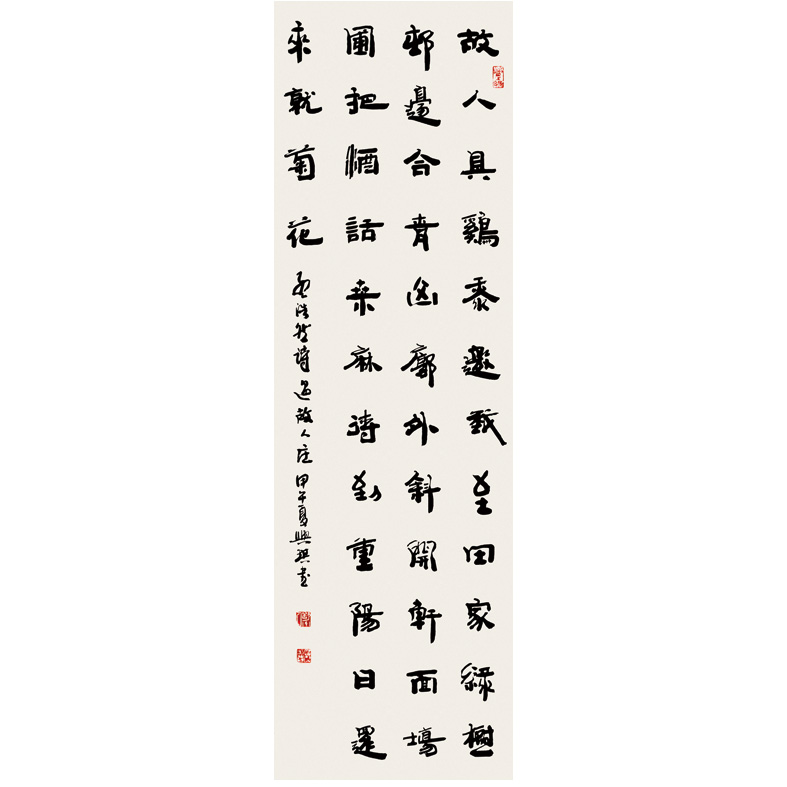 故人具鷄黍邀我至田家綠樹
邨邊合青山廓外斜開軒面場
圃把酒話桑麻待到重陽日還
來就菊花
孟浩然詩過故人庄甲午夏興琪書